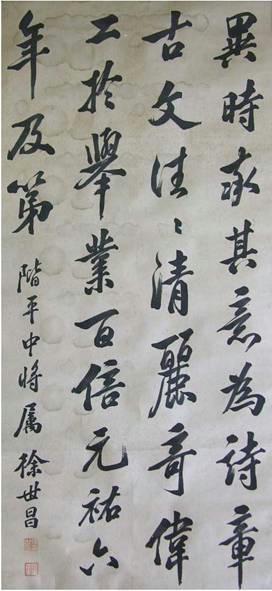 異時取其意為詩章
古文往〻清麗奇偉
工於舉業百倍元祐六
年及第 階平中將屬 徐世昌